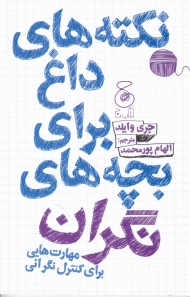 نکته‌های
داغ
برای
جری وایلد
مترجم:
الهام پورمحمد
بچه‌های
نگران
مهارت‌هایی
برای کنترل نگرانی